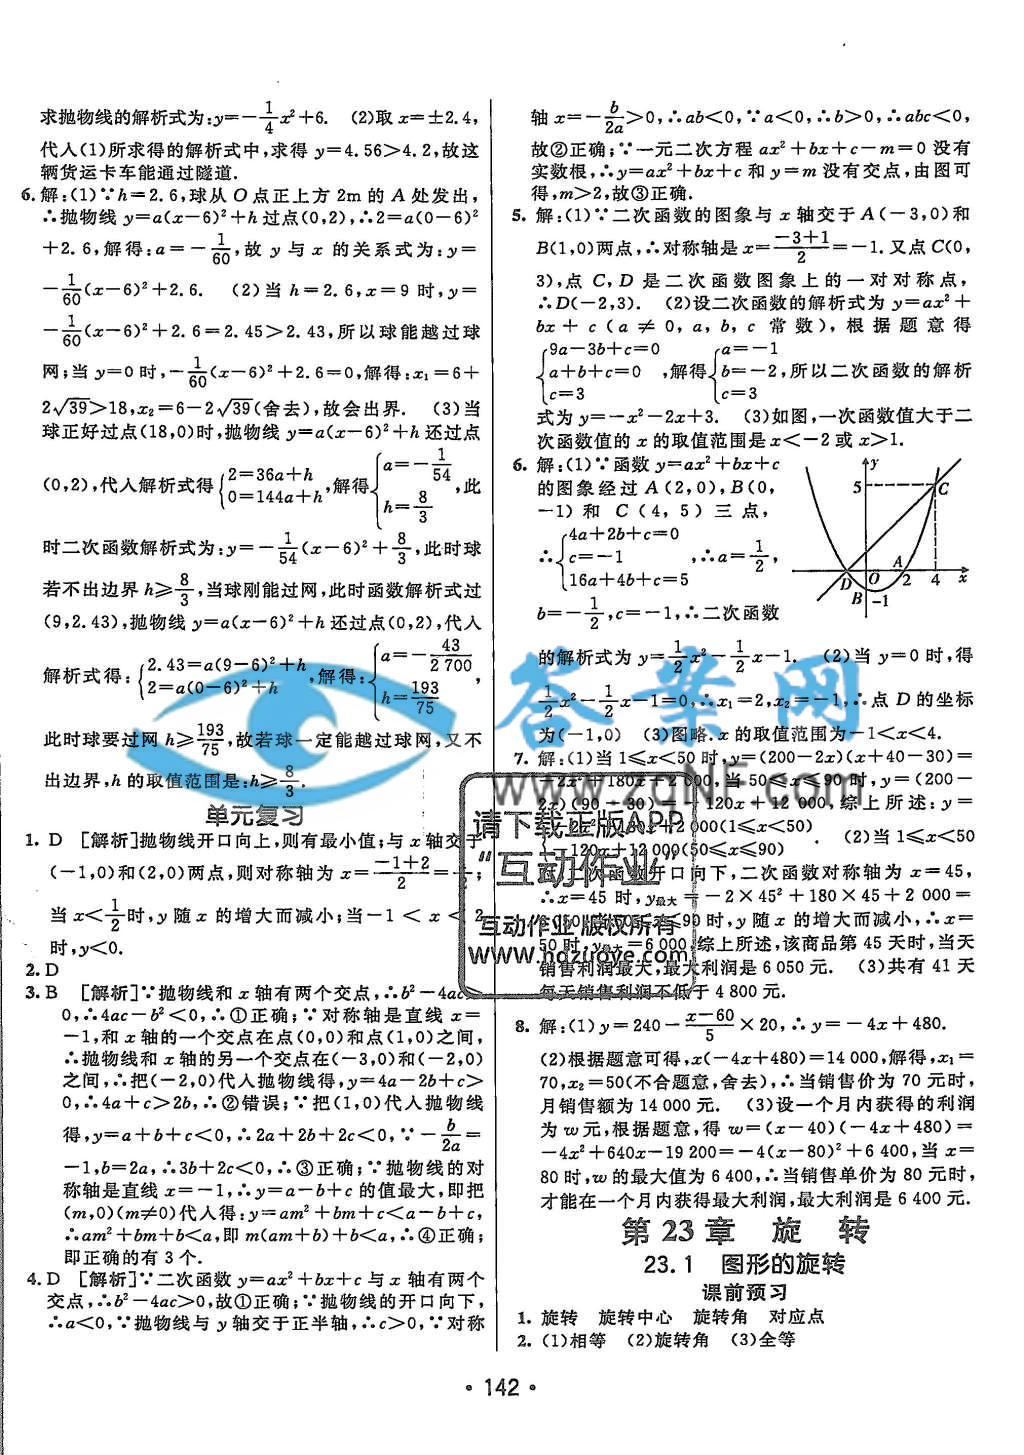 求抛物线的解析式为:y=-1/4x²+6. (2)取x=±2.4,
代入(1)所求得的解析式中,求得 y=4.56>4.2,故这
辆货运卡车能通过隧道.
6. 解:(1)∵h=2.6,球从O点正上方2m的A处发出,
∴抛物线 y=a(x-6)²+h过点(0,2),∴2=a(0-6)²
+2.6,解得:a=-1/60,故 y 与 x 的关系式为:y=
-1/60(x-6)²+2.6. (2)当 h=2.6,x=9 时,y=
-1/60(x-6)²+2.6=2.45>2.43,所以球能越过球
网;当 y=0时,-1/60(x-6)²+2.6=0,解得:x₁=6+
2√39>18,x₂=6-2√39(舍去),故会出界. (3)当
球正好过点(18,0)时,抛物线 y=a(x-6)²+h还过点
(0,2),代入解析式得{2=36a+h 0=144a+h,解得{a=-1/54 h=8/3,此
时二次函数解析式为:y=-1/54(x-6)²+8/3,此时球
若不出边界h≥8/3,当球刚能过网,此时函数解析式过
(9,2.43),抛物线 y=a(x-6)²+h还过点(0,2),代入
解析式得:{2.43=a(9-6)²+h 2=a(0-6)²+h,解得:{a=-43/2 700 h=193/75,
此时球要过网h≥193/75,故若球一定能越过球网,又不
出边界,h的取值范围是:h≥8/3.
单元复习
1. D [解析]抛物线开口向上,则有最小值;与x轴交于
(-1,0)和(2,0)两点,则对称轴为 x=(-1+2)/2=
当x<1/2时,y随x的增大而减小;当-1<x<2
时,y<0.
2. D
3. B [解析]∵抛物线和x轴有两个交点,∴b²-4ac
0,∴4ac-b²<0,∴①正确;∵对称轴是直线 x=
-1,和x轴的一个交点在点(0,0)和点(1,0)之间,
∴抛物线和x轴的另一个交点在(-3,0)和(-2,0)
之间,∴把(-2,0)代入抛物线得,y=4a-2b+c>
0,∴4a+c>2b,∴②错误;∵把(1,0)代入抛物线
得,y=a+b+c<0,∴2a+2b+2c<0,∵-b/2a=
-1,b=2a,∴3b+2c<0,∴③正确;∵抛物线的对
称轴是直线 x=-1,∴y=a-b+c的值最大,即把
(m,0)(m≠0)代入得:y=am²+bm+c<a-b+c,
∴am²+bm+b<a,即m(am+b)+b<a,∴④正确;
即正确的有3个.
4. D [解析]∵二次函数y=ax²+bx+c与x轴有两个
交点,∴b²-4ac>0,故①正确;∵抛物线的开口向下,
∴a<0,∵抛物线与y轴交于正半轴,∴c>0,∵对称
轴x=-b/2a>0,∴ab<0,∵a<0,∴b>0,∴abc<0,
故②正确;∵一元二次方程 ax²+bx+c-m=0 没有
实数根,∴y=ax²+bx+c和y=m没有交点,由图可
得,m>2,故③正确.
5. 解:(1)∵二次函数的图象与x轴交于A(-3,0)和
B(1,0)两点,∴对称轴是x=(-3+1)/2=-1.又点C(0,
3),点 C,D 是二次函数图象上的一对对称点,
∴D(-2,3). (2)设二次函数的解析式为 y=ax²+
bx+c(a≠0,a,b,c 常数),根据题意得
{9a-3b+c=0 a+b+c=0 c=3,解得{a=-1 b=-2 c=3,所以二次函数的解析
式为y=-x²-2x+3. (3)如图,一次函数值大于二
次函数值的x的取值范围是x<-2或x>1.
6. 解:(1)∵函数y=ax²+bx+c
的图象经过 A(2,0),B(0,
-1) 和 C(4,5) 三点,
∴{4a+2b+c=0 c=-1 16a+4b+c=5,∴a=1/2,
b=-1/2,c=-1,∴二次函数
y
5
C
D O A 2 4 x
B -1
的解析式为y=1/2x²-1/2x-1. (2)当y=0时,得
1/2x²-1/2x-1=0,∴x₁=2,x₂=-1,∴点D的坐标
为(-1,0) (3)图略.x的取值范围为-1<x<4.
7. 解:(1)当1≤x<50时,y=(200-2x)(x+40-30)=
-2x²+180x+2 000,当50≤x≤90时,y=(200-
2x)(90-30)=-120x+12 000,综上所述:y=
{-2x²+180x+2 000(1≤x<50) -120x+12 000(50≤x≤90). (2)当1≤x<50
时,二次函数开口向下,二次函数对称轴为x=45,
∴x=45时,y最大=-2×45²+180×45+2 000=
6 050,当50≤x≤90时,y随x的增大而减小,∴x=
50时,y最大=6 000,综上所述,该商品第45天时,当天
销售利润最大,最大利润是6 050元. (3)共有41天
每天销售利润不低于4 800元.
8. 解:(1)y=240-(x-60)/5×20,∴y=-4x+480.
(2)根据题意可得,x(-4x+480)=14 000,解得,x₁=
70,x₂=50(不合题意,舍去),∴当销售价为70元时,
月销售额为14 000元. (3)设一个月内获得的利润
为w元,根据题意,得w=(x-40)(-4x+480)=
-4x²+640x-19 200=-4(x-80)²+6 400,当x=
80时,w的最大值为6 400,∴当销售单价为80元时,
才能在一个月内获得最大利润,最大利润是6 400元.
第23章 旋 转
23.1 图形的旋转
课前预习
1. 旋转 旋转中心 旋转角 对应点
2. (1)相等 (2)旋转角 (3)全等
· 142 ·
答案网
www.zqNF.com
请下载正版APP
“互动作业”
互动作业 版权所有
www.hdzuoye.com